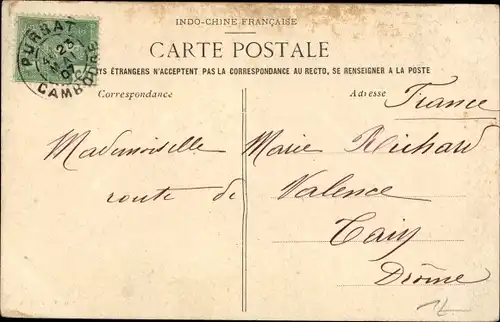 INDO-CHINE FRANÇAISE
CARTE POSTALE
YS ÉTRANGERS N'ACCEPTENT PAS LA CORRESPONDANCE AU RECTO, SE RENSEIGNER A LA POSTE
Correspondance
Adresse
France
Mademoiselle Marie Richard
route de Valence
Tain
Drôme
PURSAT
25
CAMBODGE